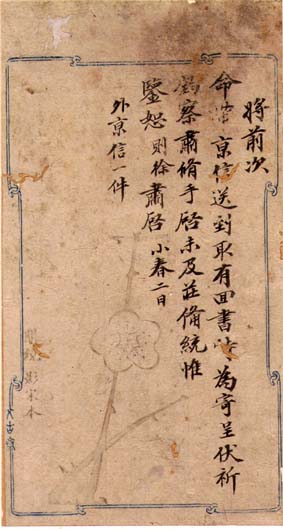 將前次
命 京信送到取有回書 為寄呈伏祈
察肅脩手啓未及莊備統惟
鑒恕則徐肅啓 小春二日
外京信一件